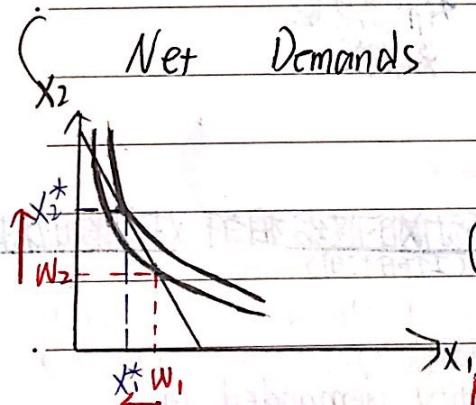 Net Demands
X₂
X₂*
W₂
X₁
X₁* W₁